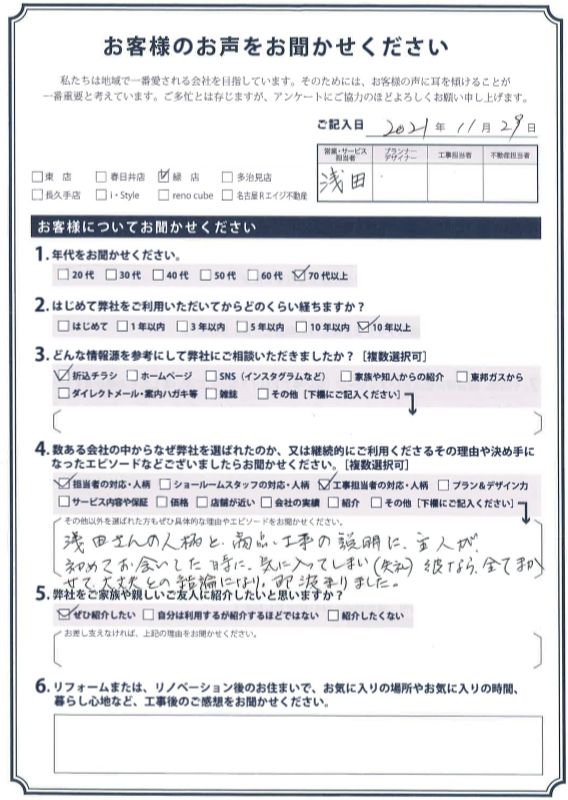 お客様のお声をお聞かせください
私たちは地域で一番愛される会社を目指しています。そのためには、お客様の声に耳を傾けることが
一番重要と考えています。ご多忙とは存じますが、アンケートにご協力のほどよろしくお願い申し上げます。
ご記入日 2021年 11月 29日
営業・サービス担当者 プランナーデザイナー 工事担当者 不動産担当者
浅田
□東 店 □春日井店 ☑緑 店 □多治見店
□長久手店 □i・Style □reno cube □名古屋Rエイジ不動産
お客様についてお聞かせください
1. 年代をお聞かせください。
□20代 □30代 □40代 □50代 □60代 ☑70代以上
2. はじめて弊社をご利用いただいてからどのくらい経ちますか？
□はじめて □1年以内 □3年以内 □5年以内 □10年以内 ☑10年以上
3. どんな情報源を参考にして弊社にご相談いただきましたか？［複数選択可］
☑折込チラシ □ホームページ □SNS（インスタグラムなど） □家族や知人からの紹介 □東邦ガスから
□ダイレクトメール・案内ハガキ等 □雑誌 □その他［下欄にご記入ください］
4. 数ある会社の中からなぜ弊社を選ばれたのか、又は継続的にご利用くださるその理由や決め手に
なったエピソードなどございましたらお聞かせください。［複数選択可］
☑担当者の対応・人柄 □ショールームスタッフの対応・人柄 ☑工事担当者の対応・人柄 □プラン＆デザイン力
□サービス内容や保証 □価格 □店舗が近い □会社の実績 □紹介 □その他［下欄にご記入ください］
その他以外を選ばれた方もぜひ具体的な理由やエピソードをお聞かせください。
浅田さんの人柄と、商品、工事の説明に、主人が、
初めてお会いした時に、気に入ってしまい（失礼）彼なら、全てまか
せて大丈夫との結論になり。即決まりました。
5. 弊社をご家族や親しいご友人に紹介したいと思いますか？
☑ぜひ紹介したい □自分は利用するが紹介するほどではない □紹介したくない
お差し支えなければ、上記の理由をお聞かせください。
6. リフォームまたは、リノベーション後のお住まいで、お気に入りの場所やお気に入りの時間、
暮らし心地など、工事後のご感想をお聞かせください。